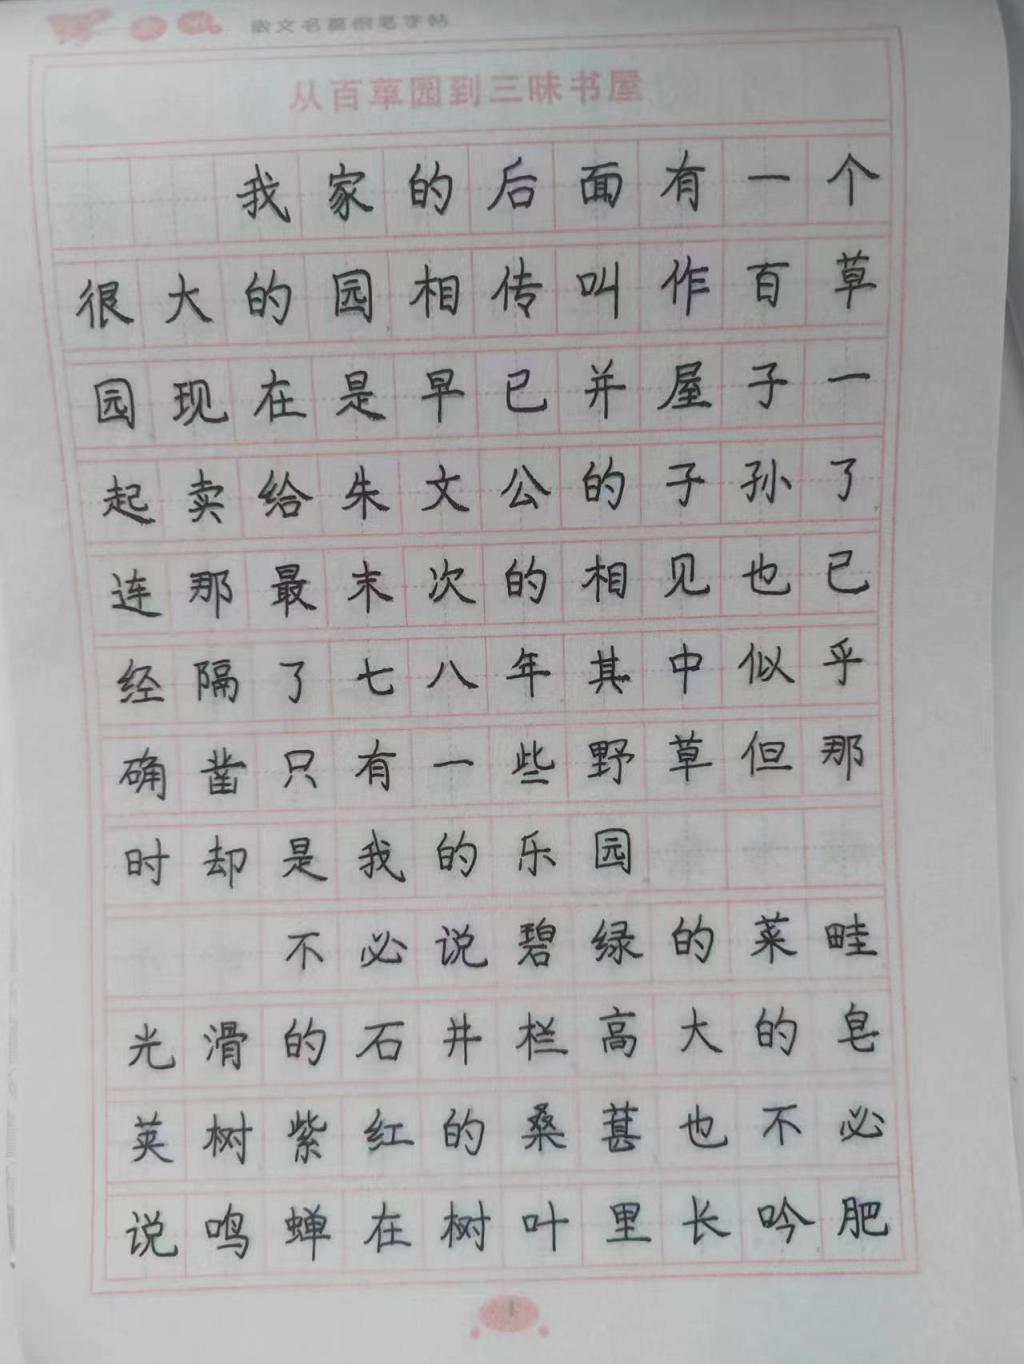 散文名篇钢笔字帖
从百草园到三味书屋
我家的后面有一个
很大的园相传叫作百草
园现在是早已并屋子一
起卖给朱文公的子孙了
连那最末次的相见也已
经隔了七八年其中似乎
确凿只有一些野草但那
时却是我的乐园
不必说碧绿的菜畦
光滑的石井栏高大的皂
荚树紫红的桑葚也不必
说鸣蝉在树叶里长吟肥
1